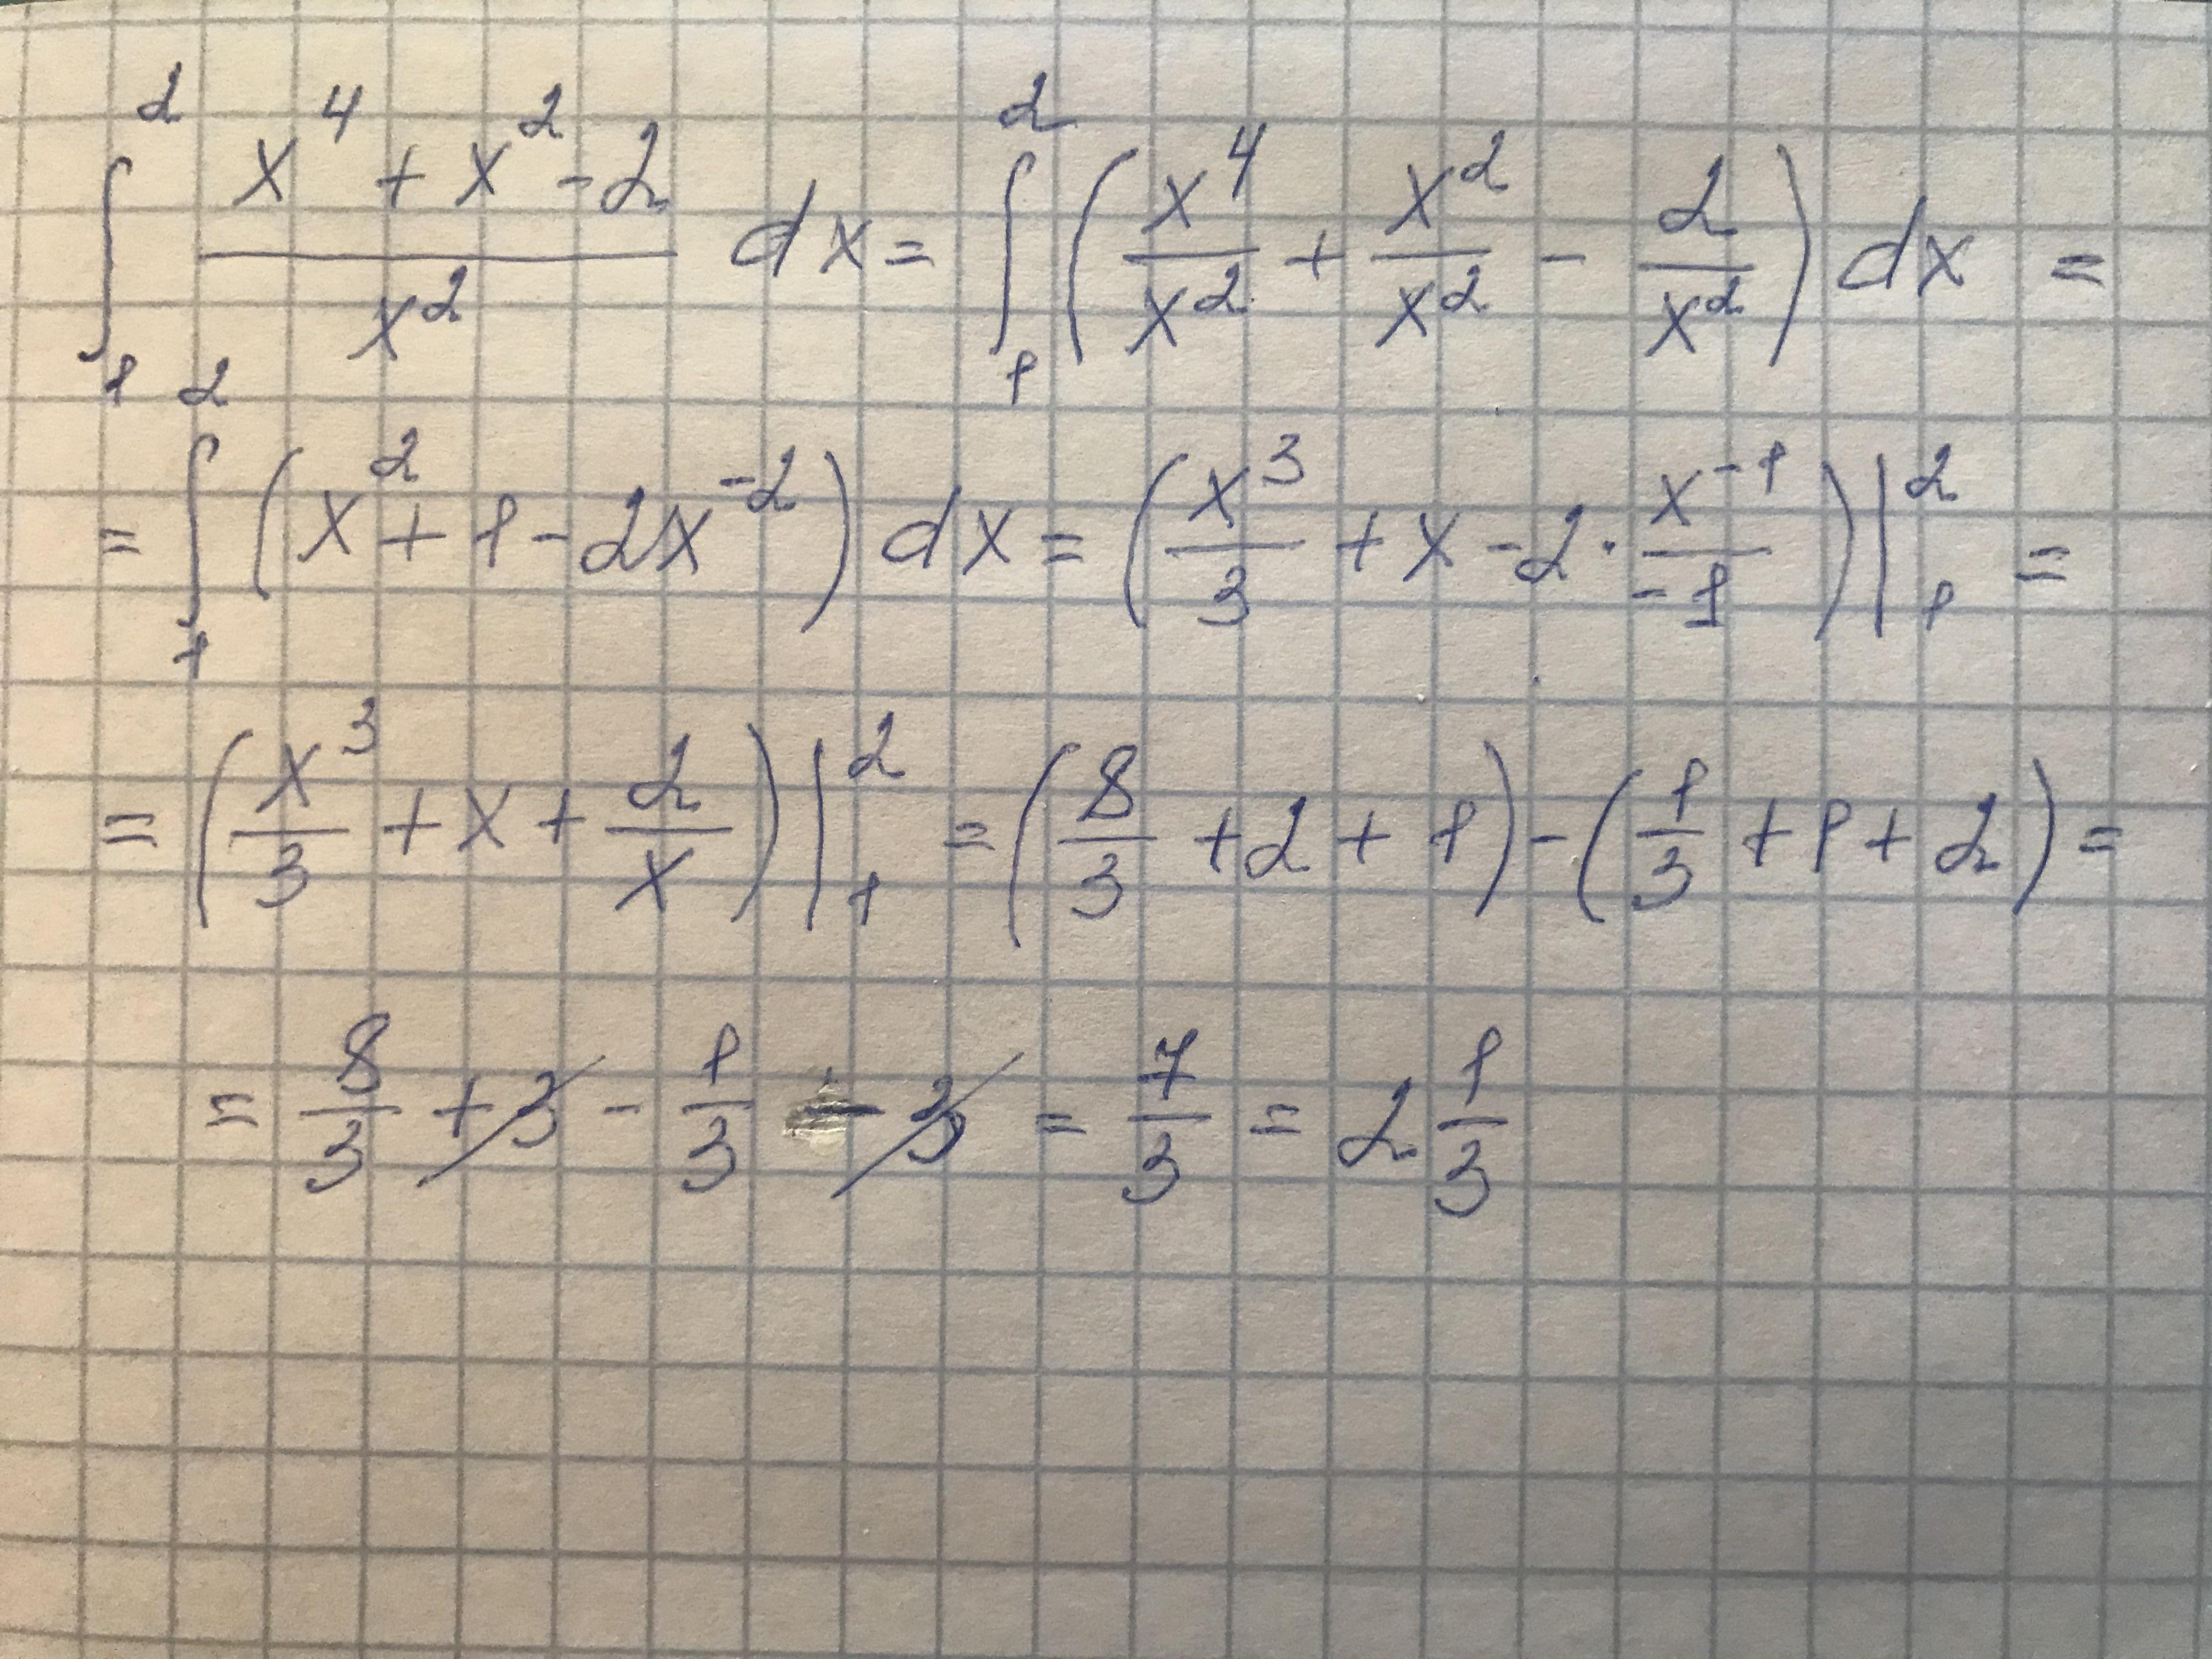 ∫₁² (x⁴ + x² - 2)/x² dx = ∫₁² (x⁴/x² + x²/x² - 2/x²) dx =
= ∫₁² (x² + 1 - 2x⁻²) dx = (x³/3 + x - 2 · x⁻¹/-1)|₁² =
= (x³/3 + x + 2/x)|₁² = (8/3 + 2 + 1) - (1/3 + 1 + 2) =
= 8/3 + 3 - 1/3 - 3 = 7/3 = 2 1/3